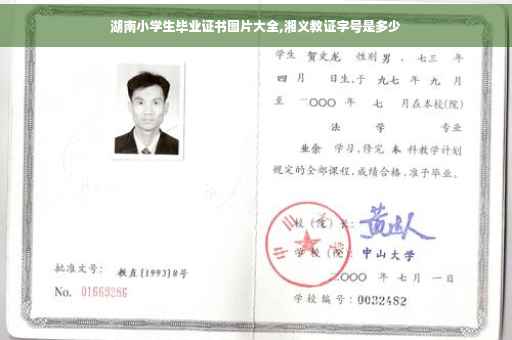 湖南小学生毕业证书图片大全,湘义教证字号是多少
学生 贺文龙 性别 男 、七三 年
四 月 日生,于 九七 年 九 月
至 二〇〇〇 年 七 月在本校(院)
法 学 专业
业余 学习,修完 本 科教学计划
规定的全部课程,成绩合格,准予毕业。
校 (院) 长:
学 校 (院): 中山大学
二〇〇〇 年 七 月 一 日
学校编号: 0032482
批准文号: 教直[1993]8号
No. 01669286